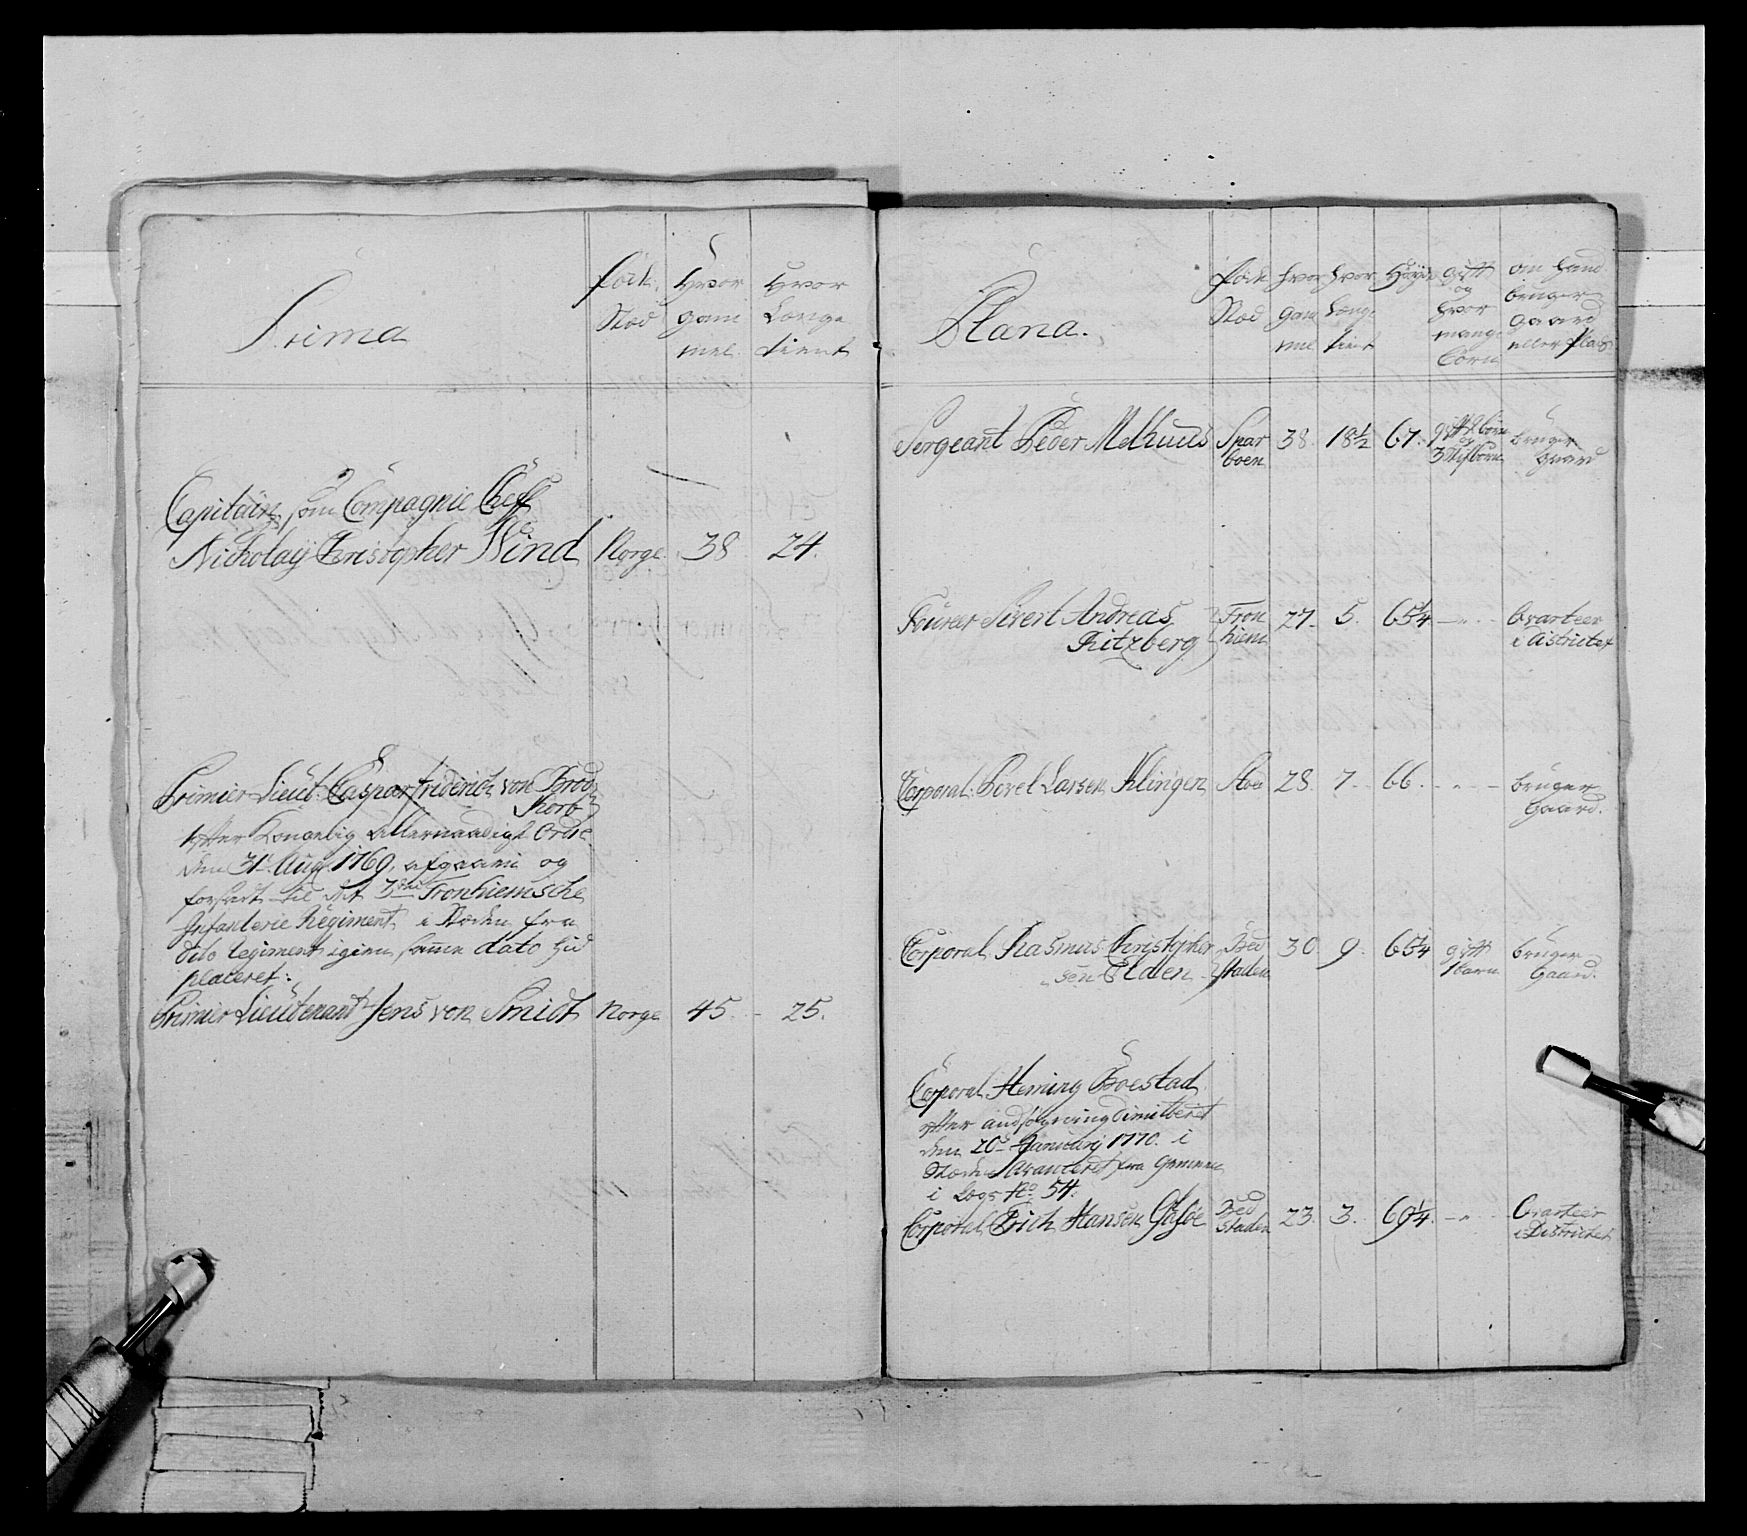 Prima
föde Stæd
Hvor gam mel
Hvor Længe tient
Capitain, som Compagnie Cheff
Nicholaÿ Christopher Wind Norge 38 24.
Primier Lieut: Caspar friderich von Brod
Korb
efter Kongelig allernaadigst Ordre
den 31t Aug: 1769, afgaaen og
forsadt til det 3die Tronhiemsche
Infanterie Regiment, i Stæden fra
dito Regiment igien samme dato hid
placeret:
Primier Lieutenant Jens von Smidt Norge 45. 25.
Plana.
føde Stæd
hvor gam mel
hvor længe tient
Høyde
gift og hvor mange Børn
om hand bruger gaard eller plads
Sergeant Peder Melhuus Spar 38. 18½ 67. gift 2 børn bruger
boen 3 Stifbørn gaard
Fourer Sivert Andreas Tron 27. 5. 65¼ — " — Qvarteer
Ritzberg hiem i Districtet
Corporal Povel Larsen Klingen Stoe 28. 7. 66. - " - bruger
Gaard.
Corporal Rasmus Christopher Bed 30 9. 65¼ gift bruger
sen Elden staden 1 barn Gaard.
Corporal Heming Boestad
efter andsøgning dimitteret
den 20d January 1770. i
Stæden Avanceret fra Gemene
i Logs No 54.
Corporal Erich Hansen Gifoe Bed 23. 3. 69¼. — " — Qvarteer
staden i Districtet